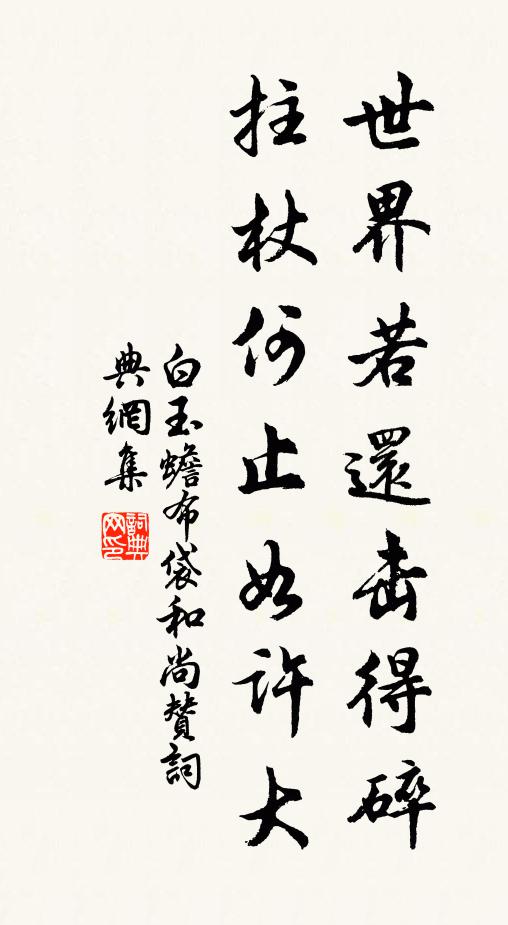 世界若還击得碎
拄杖何止如許大
白玉蟾布袋和尚贊詞
典網集
詞典
网印